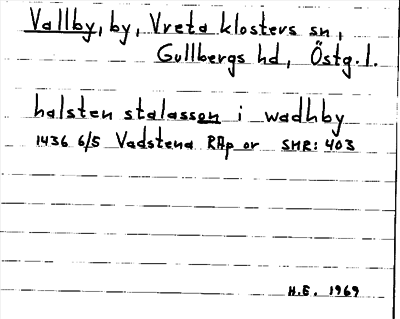 Vallby, by, Vreta klosters sn,
Gullbergs hd, Östg.l.
halsten stalasson i wadhby
1436 6/5 Vadstena RAp or SMR: 403
H.E. 1969